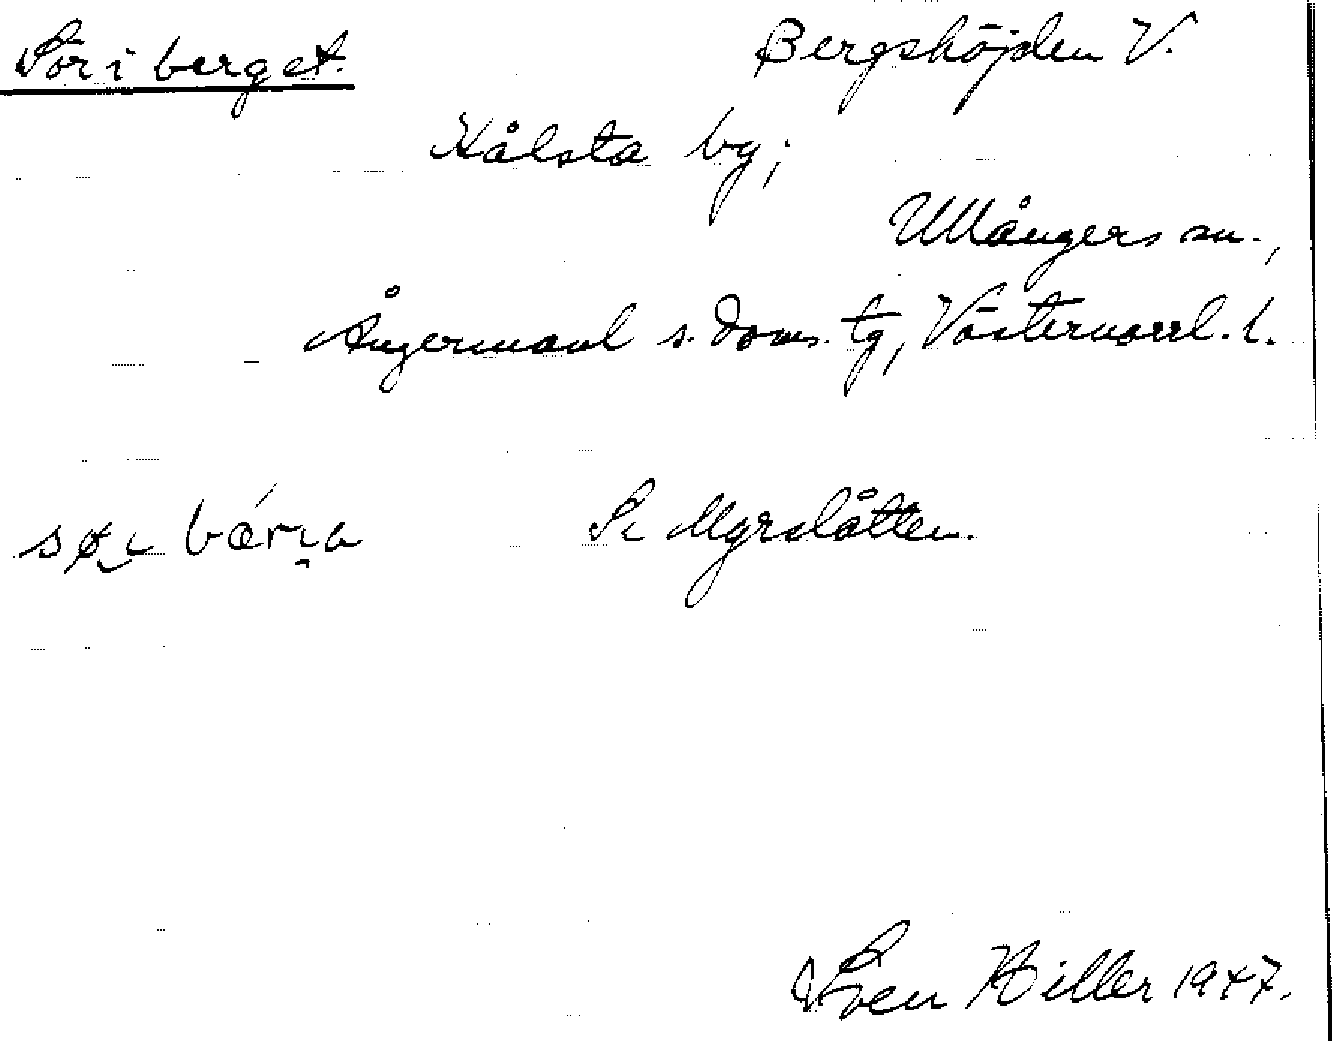 Sör i berget. Bergshöjden V.
Kålsta by;
Ullångers sn.,
Ångermanl s. doms. tg, Västernorrl. l.
Se Myrslåtten.
Sven Hiller 1947.